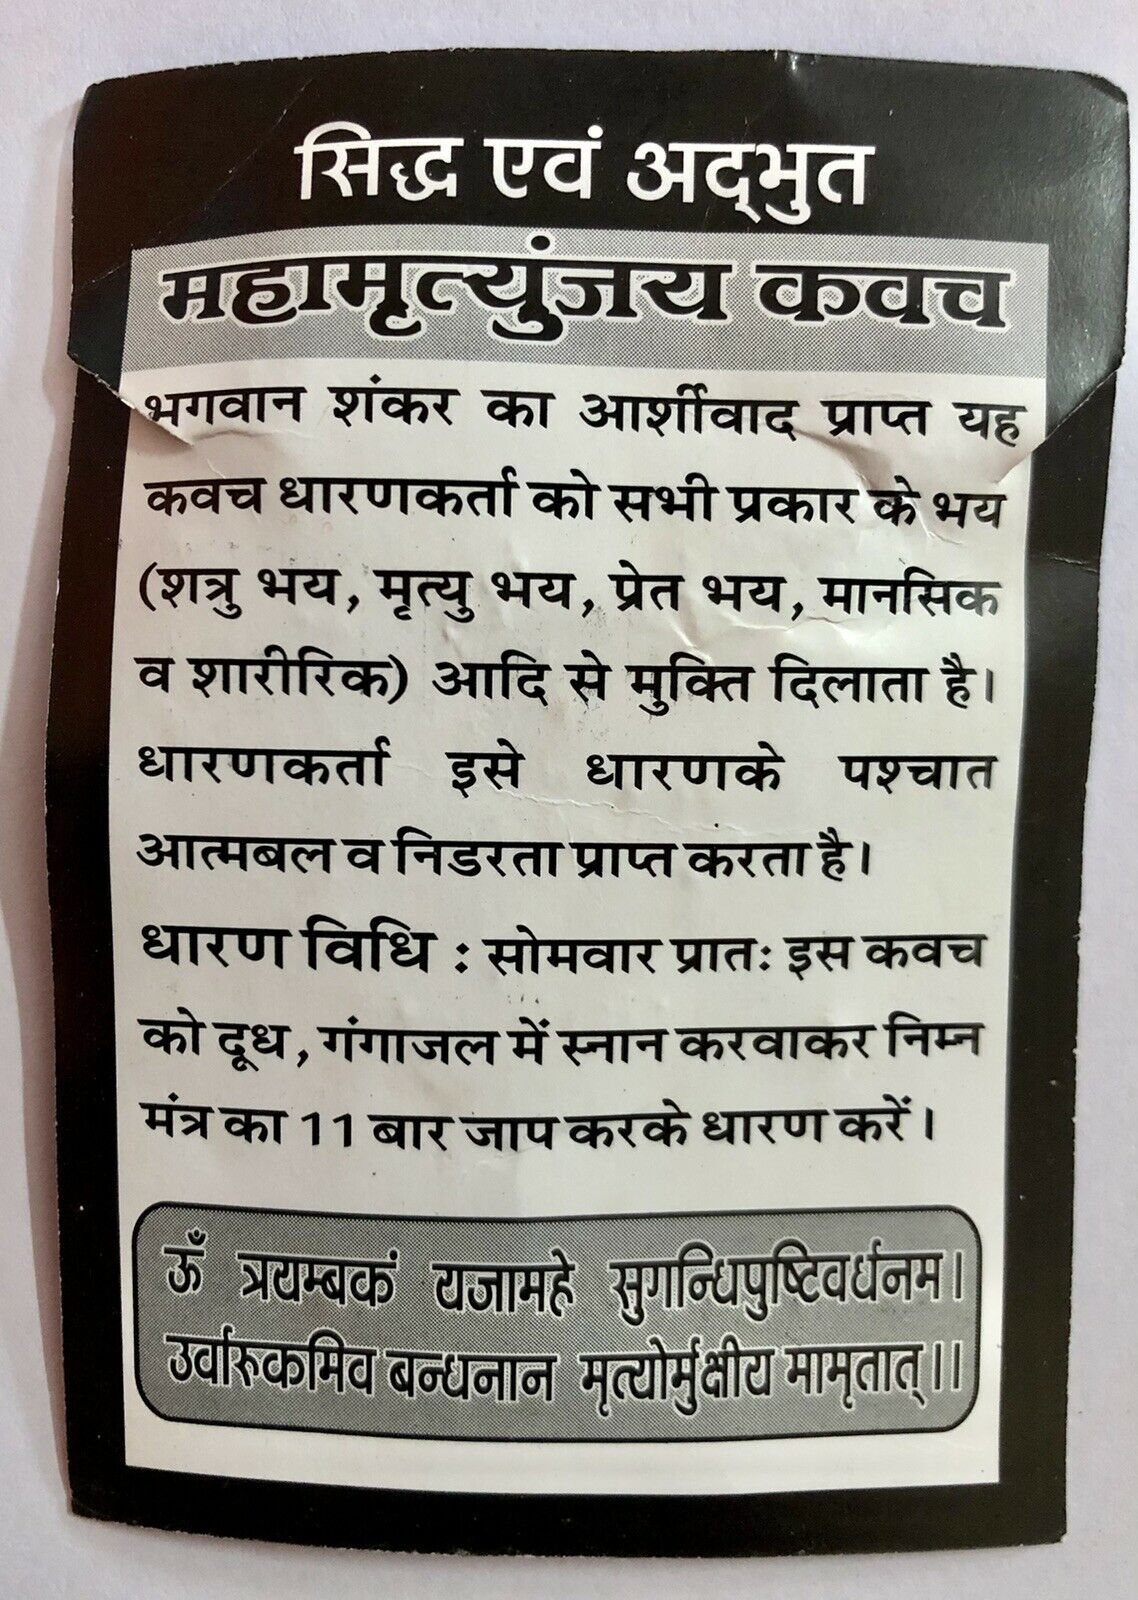 सिद्ध एवं अद्‌भुत
महामृत्युंजय कवच
भगवान शंकर का आर्शीवाद प्राप्त यह
कवच धारणकर्ता को सभी प्रकार के भय
(शत्रु भय, मृत्यु भय, प्रेत भय, मानसिक
व शारीरिक) आदि से मुक्ति दिलाता है।
धारणकर्ता इसे धारणके पश्चात
आत्मबल व निडरता प्राप्त करता है।
धारण विधि : सोमवार प्रातः इस कवच
को दूध, गंगाजल में स्नान करवाकर निम्न
मंत्र का 11 बार जाप करके धारण करें।
ऊँ त्रयम्बकं यजामहे सुगन्धिपुष्टिवर्धनम।
उर्वारुकमिव बन्धनान मृत्योर्मुक्षीय मामृतात्।।